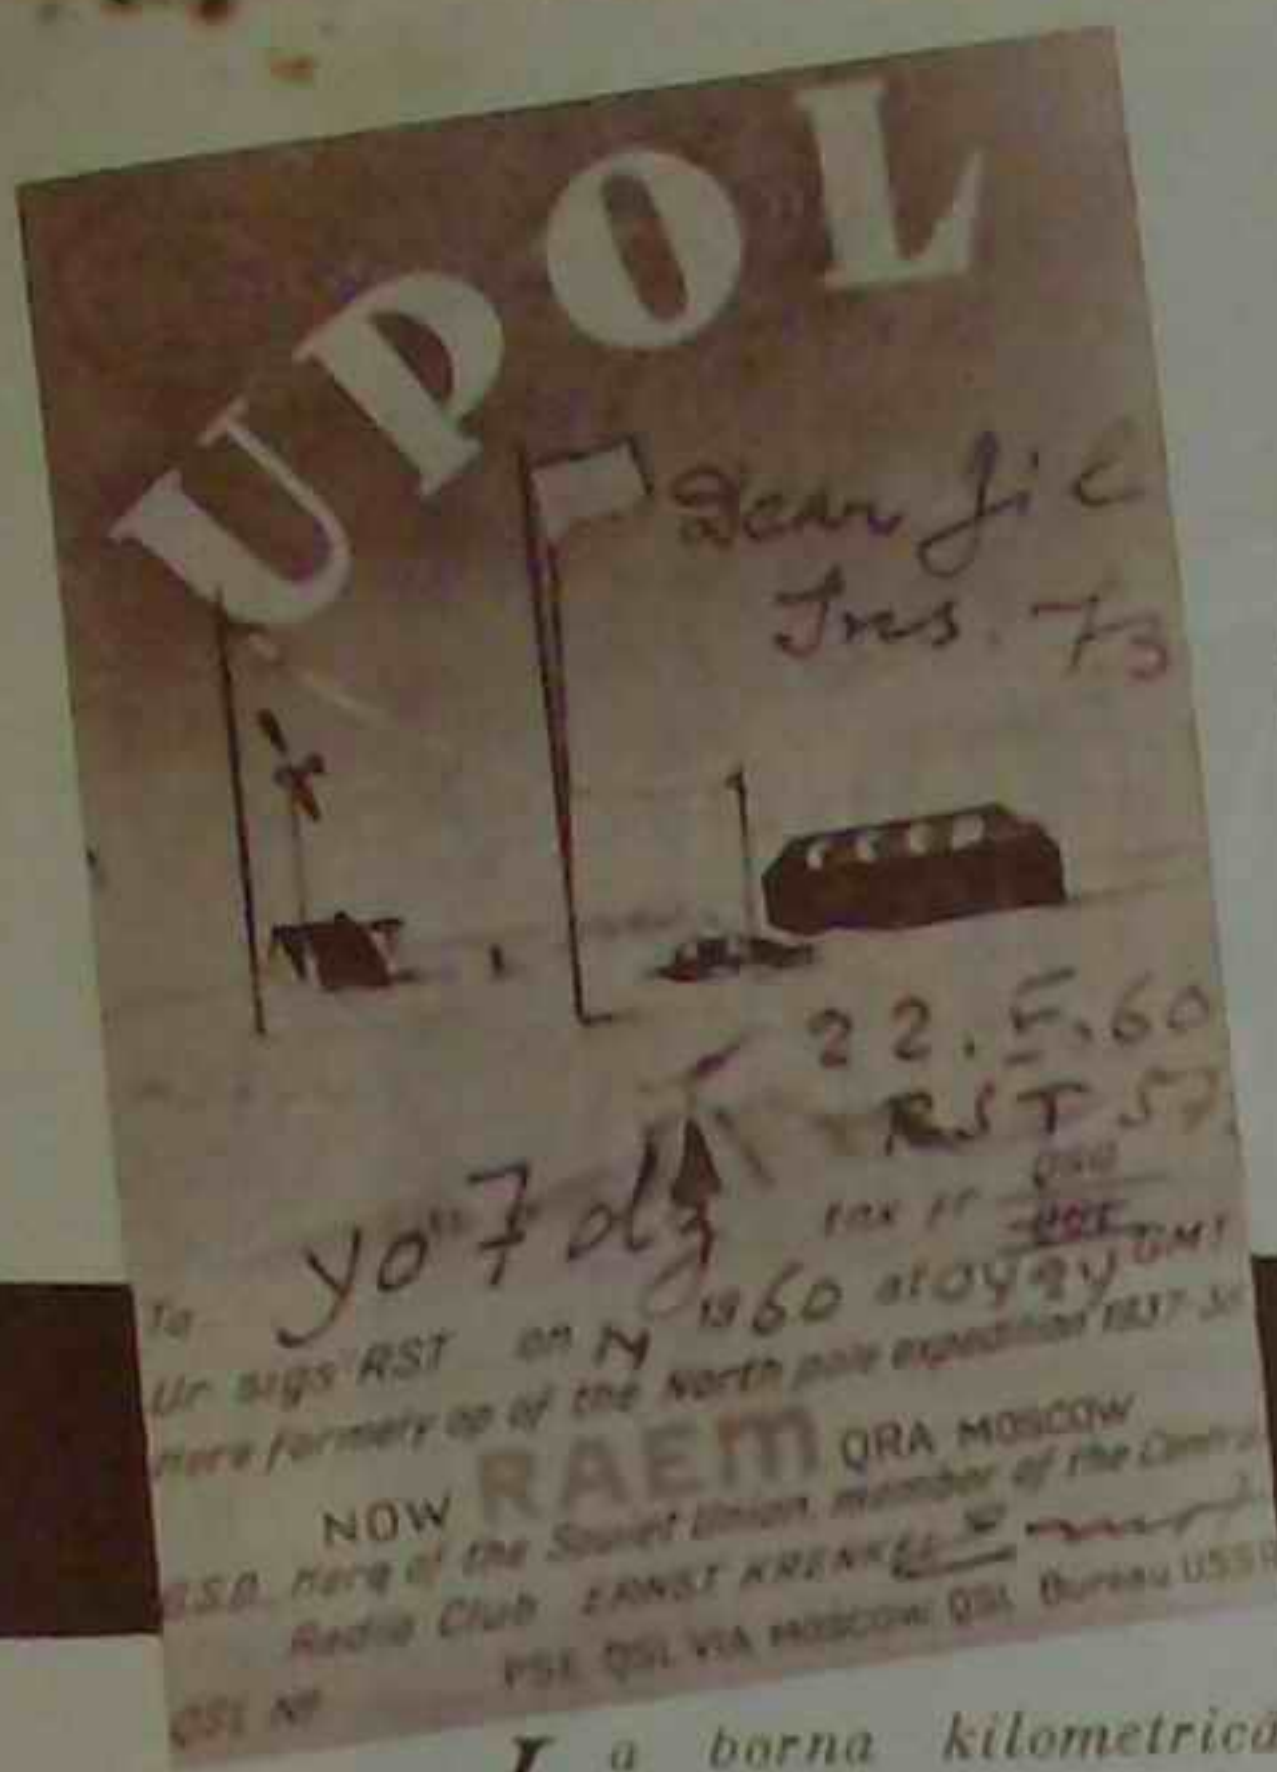 UPOL
Dear
73
22.5.60
RST 57
yo7dz
tnx fr QSO
To 1960 at GMT
Ur sigs RST on
here formely op of the North pole expedition 1937-38
NOW RAEM QRA MOSCOW
Hero of the Soviet Union, member of the Central
Radio Club ERNST KRENKEL
PSE QSL VIA MOSCOW QSL Bureau USSR
QSL Nr
La borna kilometrică